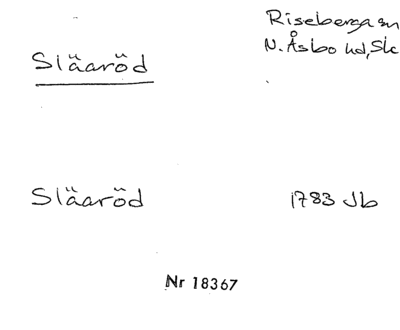 Riseberga sn
Släaröd
N. Åsbo hd, Sk
Släaröd
1783 Jb
Nr 18367